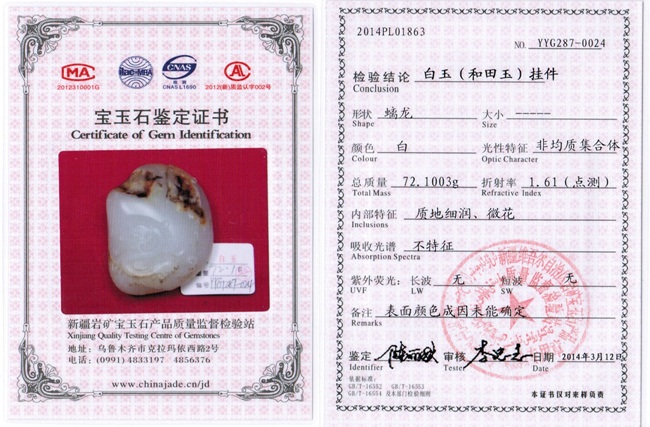 MA
ilac-MRA
CNAS
检测
CNAS L1690
AL
2012310001G
2012(新)质监认字002号
宝玉石鉴定证书
Certificate of Gem Identification
新疆岩矿宝玉石产品质量监督检验站
Xinjiang Quality Testing Centre of Gemstones
地址:乌鲁木齐市克拉玛依西路2号
电话:(0991) 4833197 4856376
www.chinajade.cn/jd
2014PL01863
NO. YYG287-0024
检验结论 白玉(和田玉)挂件
Conclusion
形状 螭龙 大小 -----
Shape Size
颜色 白 光性特征 非均质集合体
Colour Optic Character
总质量 72.1003g 折射率 1.61(点测)
Total Mass Refractive Index
内部特征 质地细润、微花
Inclusions
吸收光谱 不特征
Absorption Spectra
紫外荧光: 长波 无 短波 无
UVF LW SW
备注 表面颜色成因未能确定
Remarks
鉴定 审核 日期 2014年3月12日
Identifier Tester Date
依据标准:
GB/T-16552 GB/T-16553
GB/T-16554 及本部门检验细则
本证书仅对来样负责